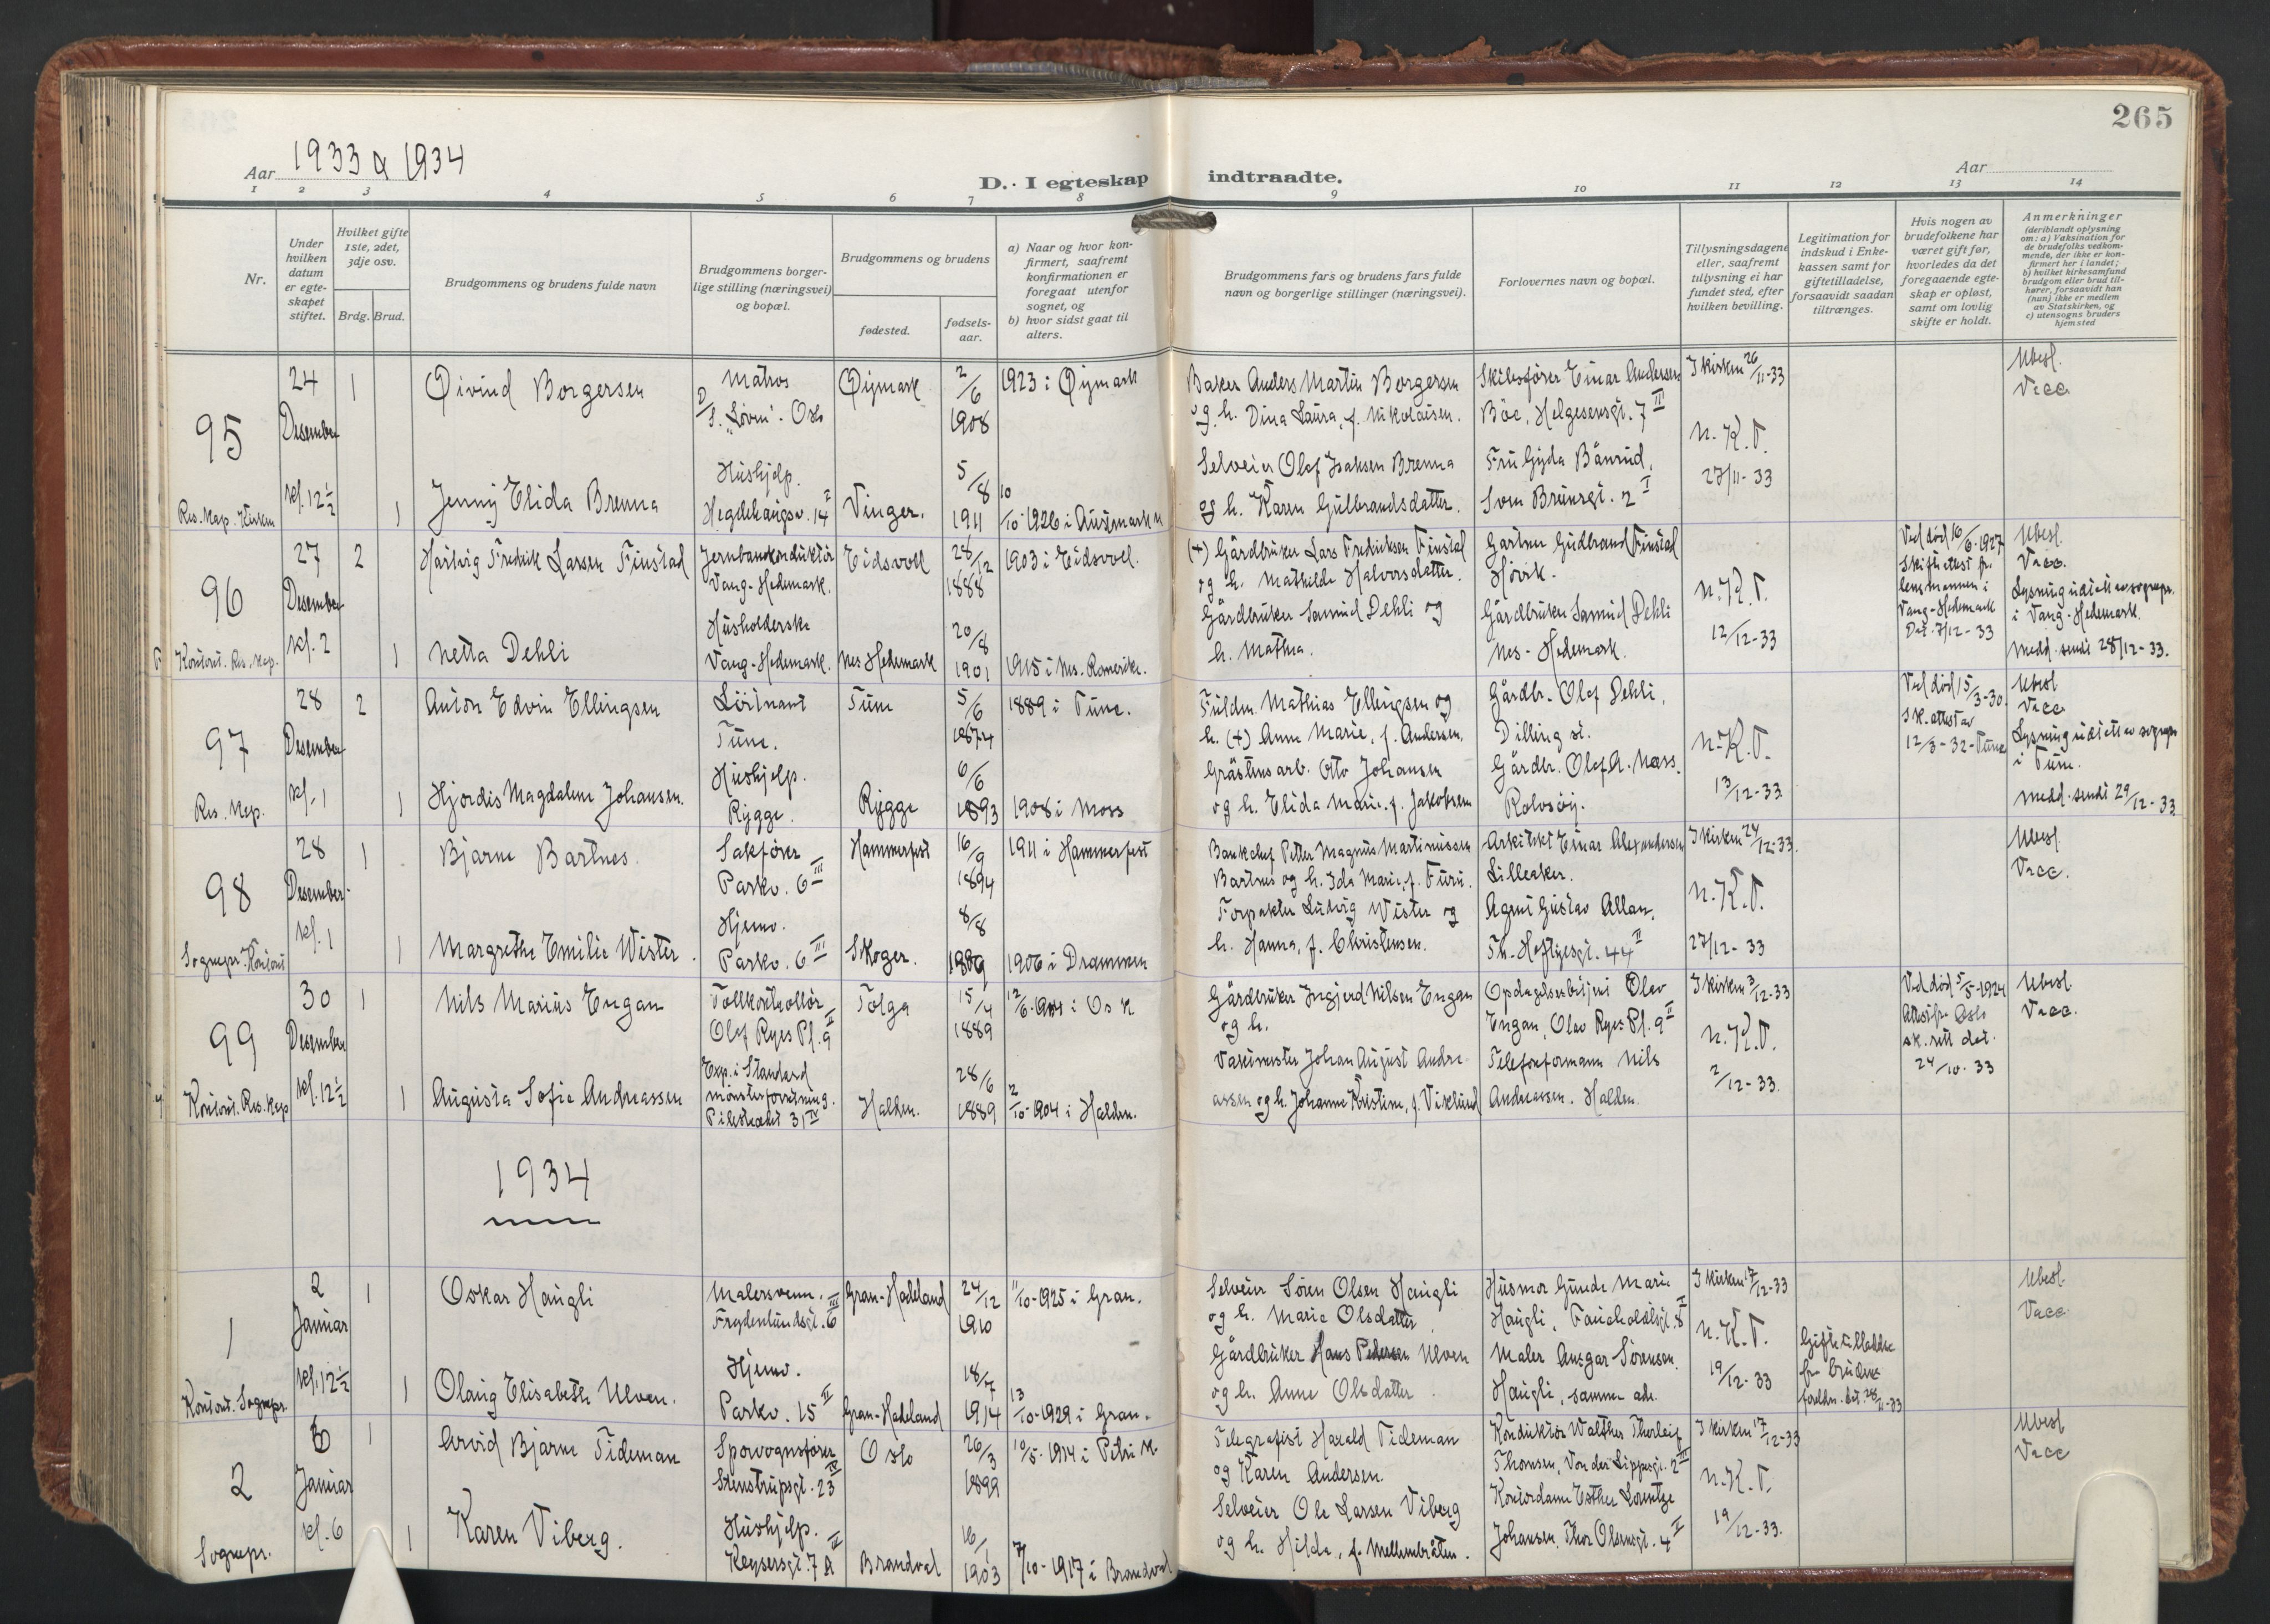 265
Aar 1933 & 1934
D. I egteskap indtraadte.
Aar
1 2 3 4 5 6 7 8 9 10 11 12 13 14
Nr.
Under hvilken datum er egteskapet stiftet.
Hvilket gifte 1ste, 2det, 3dje osv.
Brdg. Brud.
Brudgommens og brudens fulde navn
Brudgommens borgerlige stilling (næringsvei) og bopæl.
Brudgommens og brudens
fødested.
fødselsaar.
a) Naar og hvor konfirmert, saafremt konfirmationen er foregaat utenfor sognet, og
b) hvor sidst gaat til alters.
Brudgommens fars og brudens fars fulde navn og borgerlige stillinger (næringsvei).
Forlovernes navn og bopæl.
Tillysningsdagene eller, saafremt tillysning ei har fundet sted, efter hvilken bevilling.
Legitimation for indskud i Enkekassen samt for giftetilladelse, forsaavidt saadan tiltrænges.
Hvis nogen av brudefolkene har været gift før, hvorledes da det foregaaende egteskap er opløst, samt om lovlig skifte er holdt.
Anmerkninger
(deriblandt oplysning om: a) Vaksination for de brudefolks vedkommende, der ikke er konfirmert her i landet;
b) hvilket kirkesamfund brudgom eller brud tilhører, forsaavidt han (hun) ikke er medlem av Statskirken, og
c) utensogns bruders hjemsted
95
24 Desember kl. 12 1/2
Res. Kap. Kirken
1 Øivind Borgersen
Matros D/S. "Løven". Oslo
Øymark 2/6 1908 1923 i Øymark
Baker Anders Martin Borgersen
og h. Dina Laura, f. Nikolaisen.
Skibsfører Einar Andersen
Böe, Helgesensgt. 7 II
I kirken 26/11-33
Ubesl.
Vacc.
1 Jenny Elida Brenna
Hushjelp. Hegdehaugsv. 14 II
Vinger. 5/8 1911 10/10-1926 i Austmarka
Selveier Olaf Isaksen Brenna
og h. Karen Gulbrandsdatter.
Fru Gyda Bånrud,
Sven Brunsgt. 2 I
N.K.T.
27/11-33
96
27 Desember kl. 2
Kontoret. Res. Kap.
2 Hartvig Fredrik Larsen Finstad
Jernbanekonduktör Vang-Hedemark.
Eidsvoll 28/12 1888 1903 i Eidsvoll.
(+) Gårdbruker Lars Fredriksen Finstad
og h. Mathilde Halvorsdatter.
Gartner Gudbrand Finstad
Hövik.
Ved död 16/6-1927
Skifteattest fr. lensmannen i Vang-Hedemark
Dat. 7/12-33
Ubesl.
Vacc.
Lysning utstedt av sognepr. i Vang-Hedemark.
Medd. sendt 28/12-33.
1 Netta Dehli
Husholderske Vang-Hedemark.
Nes Hedemark 20/8 1901 1915 i Nes. Romerike.
Gårdbruker Samuel Dehli og
h. Mathea.
Gårdbruker Samuel Dehli
Nes-Hedemark.
N.K.T.
12/12-33
97
28 Desember kl. 1
Res. Kap.
2 Anton Edvin Ellingsen
Löitnant Tune.
Tune 5/6 1874 1889 i Tune.
Fuldm. Mathias Ellingsen og
h. (+) Anne Marie, f. Andersen.
Gårdbr. Olaf Dehli,
Dilling st.
Ved död 15/3-30.
Sk. attest av 12/3-32-Tune
Ubesl
Vacc
Lysning utstedt av sognepr. i Tune.
Medd. sendt 29/12-33
1 Hjördis Magdalene Johansen.
Hushjelp. Rygge.
Rygge 6/6 1893 1908 i Moss
Gråstensarb. Otto Johansen
og h. Elida Marie, f. Jakobsen
Gårdbr. Olaf A. Næss.
Rolvsöy.
N.K.T.
13/12-33
98
28 Desember kl. 1
Sognepr. Kontoret
1 Bjarne Bartnes.
Sakförer Parkv. 6 III
Hammerfest 16/9 1894 1911 i Hammerfest
Bankchef Petter Magnus Martinussen
Bartnes og h. Ida Marie, f. Furu.
Arkitekt Einar Alexandersen
Lilleaker.
I kirken 24/12-33.
Ubesl.
Vacc.
1 Margrethe Emilie Wister.
Hjemv. Parkv. 6 III
Skoger. 8/8 1889 1906 i Drammen
Forpakter Ludvig Wister og
h. Hanna, f. Christensen.
Agent Gustav Allan,
Th. Heftyesgt. 44 II
N.K.T.
27/12-33
99
30 Desember kl. 12 1/2
Kontoret. Res. Kap
1 Nils Marius Engan
Tollkontrollör Olaf Ryes Pl. 9 II
Tolga 15/4 1889 12/6-1904 i Os K
Gårdbruker Ingjerd Nilsen Engan
og h.
Opdagelsesbetjent Olav
Engan, Olav Ryes Pl. 9 II
I kirken 3/12-33
Ved död 5/5-1924
Attest fr. Oslo sk. rett dat. 24/10-33
Ubesl.
Vacc.
1 Augusta Sofie Andreassen
Exp. i Standard mönsterforretning. Pilestredet 31 IV
Halden. 28/6 1889 2/10-1904 i Halden.
Vaktmester Johan August Andreassen
og h. Johanne Kristine, f. Viklund
Telefonformann Nils
Andreassen. Halden.
N.K.T.
2/12-33.
1934
1
2 Januar kl. 12 1/2
Kontoret. Sognepr.
1 Oskar Haugli
Malersvenn. Frydenlundsgt. 6 III
Gran-Hadeland 24/12 1910 11/10-1925 i Gran.
Selveier Sören Olsen Haugli
og h. Marie Olsdatter
Husmor Gunda Marie
Haugli, Fauchaldsgt. 8 I
I kirken 17/12-33
Ubesl.
Vacc.
1 Olaug Elisabeth Ulven.
Hjemv. Parkv. 15 II
Gran-Hadeland 18/7 1914 13/10-1929 i Gran.
Gårdbruker Hans Pedersen Ulven
og h. Anne Olsdatter.
Maler Ansgar Sörensen
Haugli, samme adr.
N.K.T.
19/12-33
Giftetilladelse fr. brudens foreldre. dat. 28/11-33
2
6 Januar kl. 6
Sognepr.
1 Arvid Bjarne Tideman
Sporvognsförer Stenstrupsgt. 23 IV
Oslo 26/3 1899 10/5-1914 i Petri K.
Telegrafist Harald Tideman
og Karen Andersen.
Konduktör Walther Thorleif
Thomsen, Von der Lippesgt. 2 III
I kirken 17/12-33
Ubesl
Vacc
1 Karen Viberg.
Hushjelp. Keysersgt. 7 A III
Brandval 16/1 1903 7/10-1917 i Brandval
Selveier Ole Larsen Viberg
og h. Hilda, f. Mellembråten.
Kontordame Esther Lorentze
Johansen, Thor Olsensgt. 4 II
N.K.T.
19/12-33.